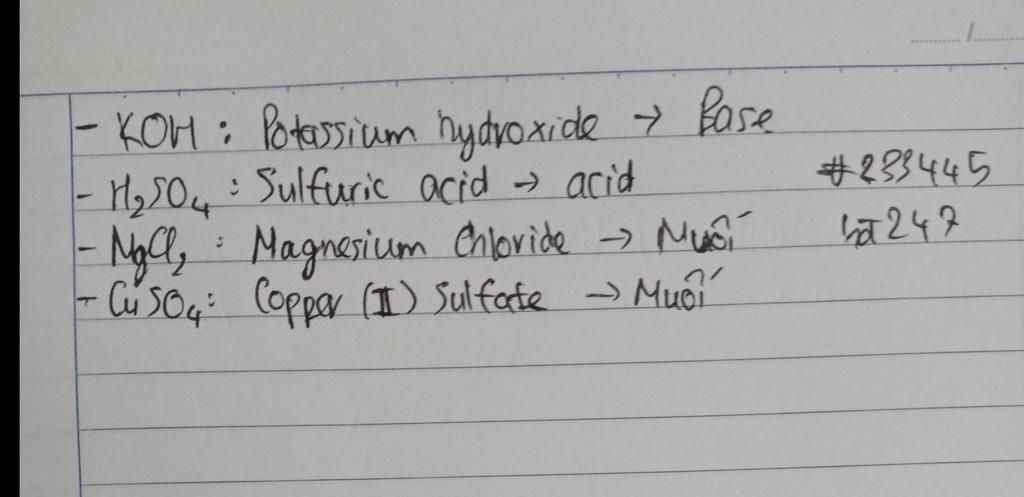 - KOH : Potassium hydroxide → Base
- H₂SO₄ : Sulfuric acid → acid #233445
- MgCl₂ : Magnesium Chloride → Muối 247
- CuSO₄ : Copper (II) Sulfate → Muối